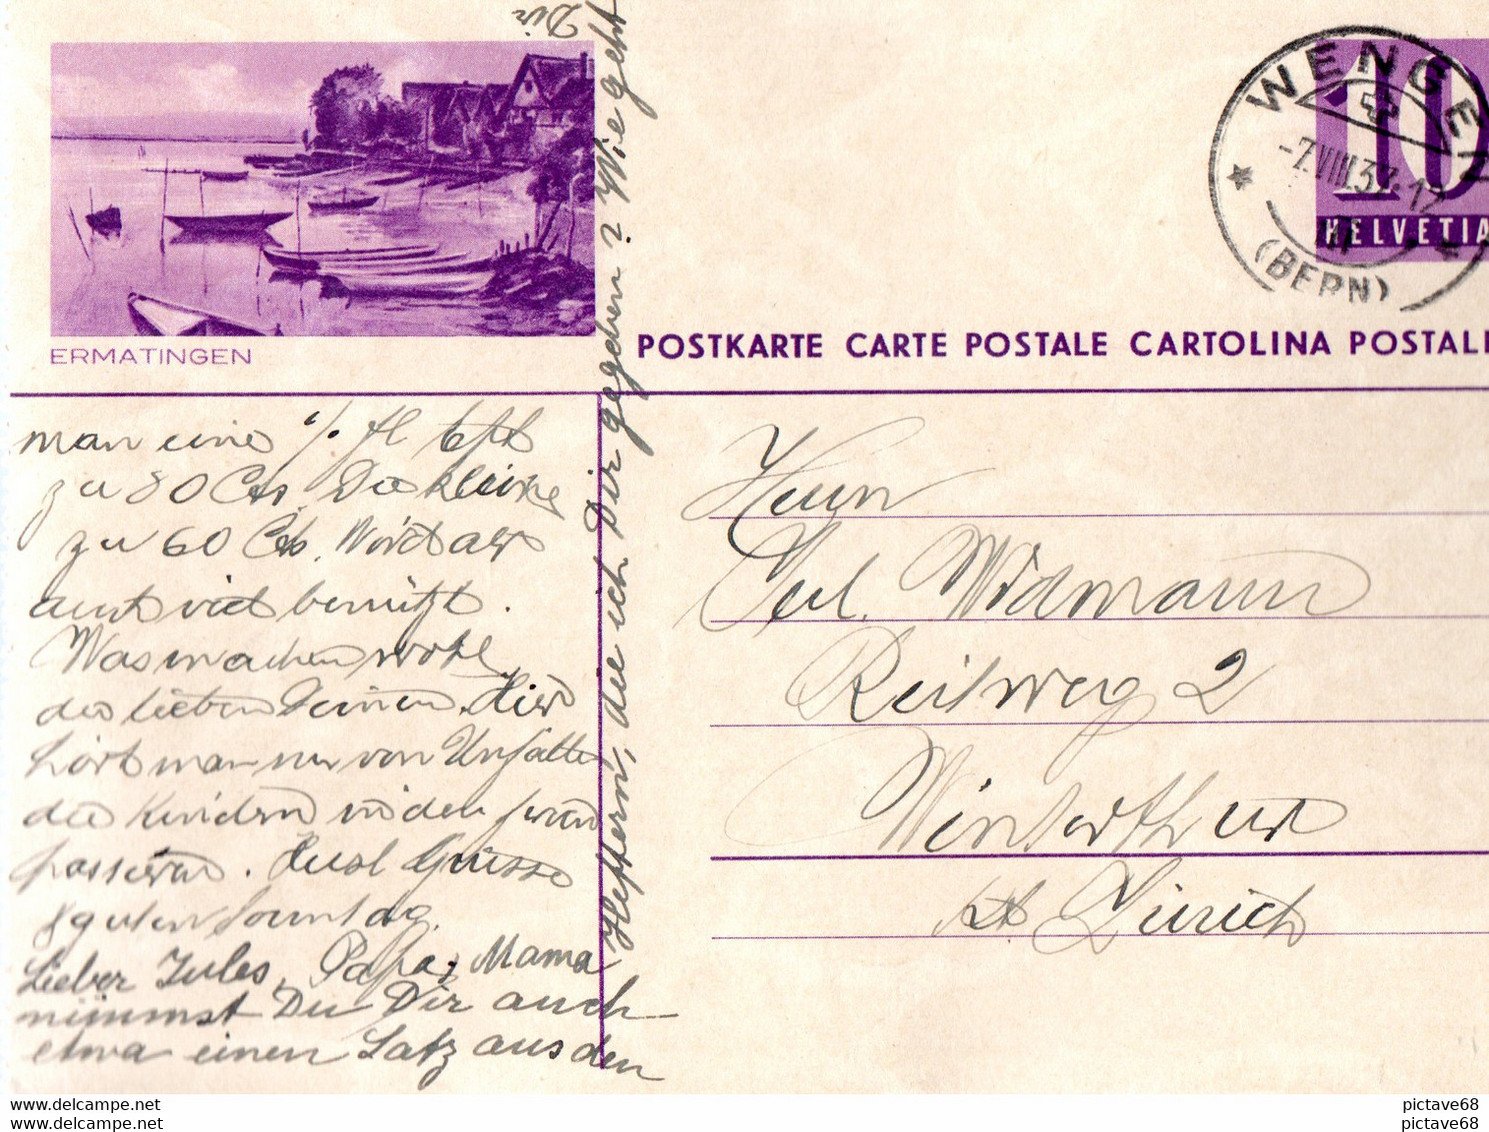 Dir
WENGEN
-7.VIII.37.-12
(BERN)
10
HELVETIA
ERMATINGEN
POSTKARTE CARTE POSTALE CARTOLINA POSTALE
man eine
zu 80 Cts. Die kleine
zu 60 Cts. Wird aber
auch viel benützt.
Was machen wohl
die lieben Deinen. Hier
hört man nur von Unfällen
die Kindern in den
passieren. Grüsse
& guten Sonntag.
Lieber Jules, Papa, Mama
nimmst Du Dir auch
etwa einen Satz aus den
Heftern, die ich Dir gegeben? Wie geht
Herrn
Jul. Widmann
Reitweg 2
Winterthur
Kt. Zürich
pictave68 pictave68
pictave68 pictave68